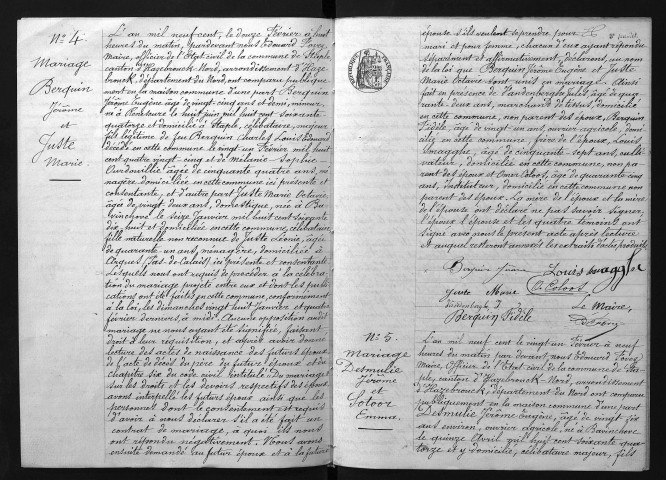 N° 4.
Mariage
Berquin
Jérôme
et
Juste
Marie.
L'an mil neuf cent, le douze Février à huit
heures du matin, par devant nous Edouard
Maire, officier de l'Etat civil de la commune de Staple,
canton d'Hazebrouck Nord, arrondissement d'Haze-
brouck, département du Nord, ont comparu publique-
ment en la maison commune d'une part Berquin
Jérôme Eugène, âgé de vingt-cinq ans et demi, mineur
né à le huit juin mil huit cent soixante
quatorze et domicilié à Staple, célibataire, majeur
fils légitime de feu Berquin Charles Louis
décédé en cette commune le vingt un Février mil huit
cent quatre vingt cinq et de Mélanie Sophie
âgée de cinquante quatre ans, mé-
nagère domiciliée en cette commune ici présente et
consentante, et d'autre part Juste Marie Octavie,
âgée de vingt deux ans, domestique, née à
Bavinchove le seize Janvier mil huit cent soixante
dix-huit et domiciliée en cette commune, célibataire
fille naturelle non reconnue de Juste Léonie, âgée
de quarante un ans, ménagère, domiciliée à
Arques (Pas-de-Calais) ici présente et consentante.
Lesquels nous ont requis de procéder à la célébra-
tion du mariage projeté entre eux et dont les publi-
cations ont été faites en cette commune, conformément
à la loi, les dimanches vingt huit Janvier et quatre
février derniers, à midi. Aucune opposition audit
mariage ne nous ayant été signifiée, faisant
droit à leur réquisition, et après avoir donné
lecture des actes de naissance des futurs époux,
de l'acte de décès du père du futur époux et du
chapitre six du code civil intitulé: Du mariage
sur les droits et les devoirs respectifs des époux
avons interpellé les futurs époux ainsi que les
personnes dont le consentement est requis
d'avoir à nous déclarer s'il a été fait un
contrat de mariage, à quoi ils nous
ont répondu négativement. Nous avons
ensuite demandé au futur époux et à la future
épouse s'ils veulent se prendre pour
mari et pour femme, chacun d'eux ayant répondu
séparément et affirmativement, déclarons, au nom
de la loi que Berquin Jérôme Eugène et Juste
Marie Octavie sont unis en mariage. Ainsi
fait en présence de Vandenberghe Jules, âgé de quaran-
te deux ans, marchand de tissus, domicilié
en cette commune, non parent des époux, Berquin
Fidèle, âgé de vingt un ans, ouvrier agricole, domi-
cilié en cette commune, frère de l'époux, Louis
âgé de cinquante-sept ans, culti-
vateur, domicilié en cette commune, non pa-
rent des époux et Omer Coloos, âgé de quarante cinq
ans, instituteur, domicilié en cette commune, non
parent des époux. La mère de l'époux et la mère
de l'épouse ont déclaré ne pas savoir signer.
L'époux, l'épouse et les quatre témoins ont
signé avec nous le présent acte après lecture
et auquel resteront annexés les extraits
Juste Marie
O. Coloos
Le Maire,
Berquin Fidèle
N° 5.
Mariage
Desmulie
Jérôme
et
Emma.
L'an mil neuf cent le vingt un Février à neuf
heures du matin par devant nous Edouard
Maire, officier de l'Etat civil de la commune de Sta-
ple, canton d'Hazebrouck Nord, arrondissement
d'Hazebrouck, département du Nord ont comparu
publiquement en la maison commune d'une part
Desmulie Jérôme Eugène, âgé de vingt six
ans environ, ouvrier agricole, né à Bavinchove
le quinze Avril mil huit cent soixante qua-
torze et y domicilié, célibataire majeur, fils